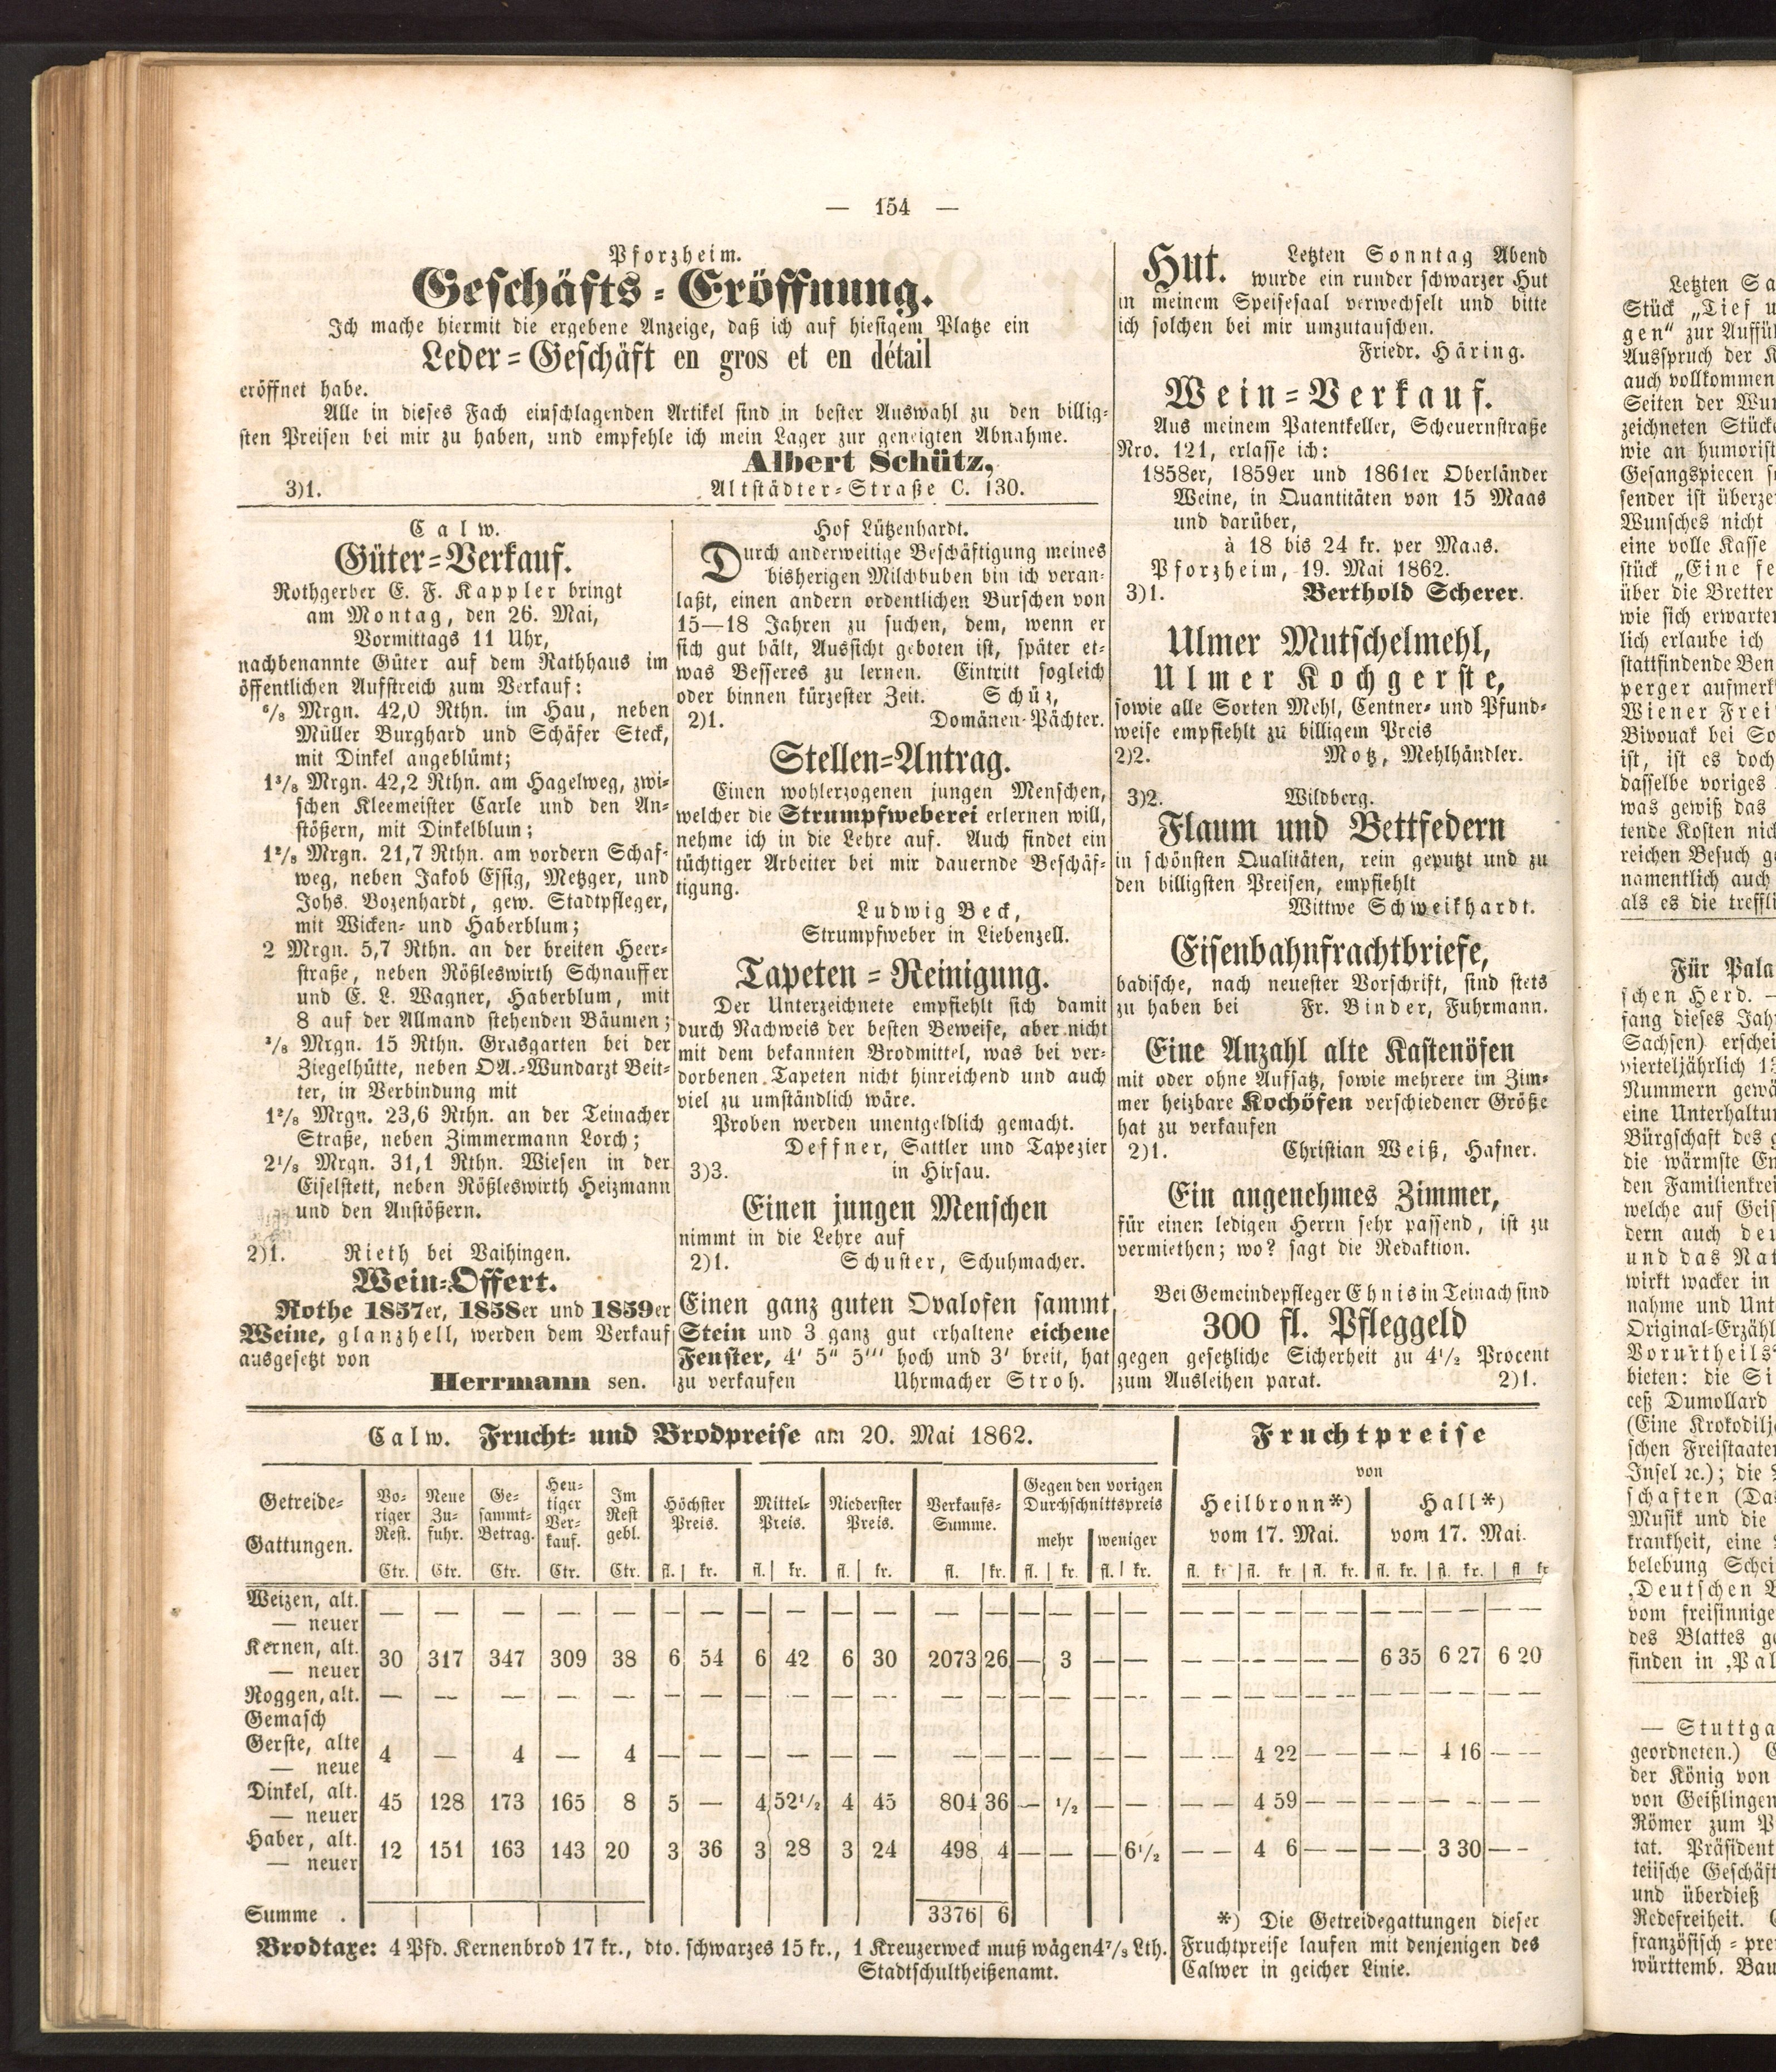 — 154 —
Pforzheim.
Geschäfts-Eröffnung.
Ich mache hiermit die ergebene Anzeige, daß ich auf hiesigem Platze ein
Leder-Geschäft en gros et en détail
eröffnet habe.
Alle in dieses Fach einschlagenden Artikel sind in bester Auswahl zu den billig-
sten Preisen bei mir zu haben, und empfehle ich mein Lager zur geneigten Abnahme.
Albert Schütz,
3)1. Altstädter-Straße C. 130.
Calw.
Güter-Verkauf.
Rothgerber E. F. Kappler bringt
am Montag, den 26. Mai,
Vormittags 11 Uhr,
nachbenannte Güter auf dem Rathhaus im
öffentlichen Aufstreich zum Verkauf:
⁶/₈ Mrgn. 42,0 Rthn. im Hau, neben
Müller Burghard und Schäfer Steck,
mit Dinkel angeblümt;
1³/₈ Mrgn. 42,2 Rthn. am Hagelweg, zwi-
schen Kleemeister Carle und den An-
stößern, mit Dinkelblum;
1²/₈ Mrgn. 21,7 Rthn. am vordern Schaf-
weg, neben Jakob Essig, Metzger, und
Johs. Bozenhardt, gew. Stadtpfleger,
mit Wicken- und Haberblum;
2 Mrgn. 5,7 Rthn. an der breiten Heer-
straße, neben Rößleswirth Schnauffer
und E. L. Wagner, Haberblum, mit
8 auf der Allmand stehenden Bäumen;
³/₈ Mrgn. 15 Rthn. Grasgarten bei der
Ziegelhütte, neben OA.-Wundarzt Beit-
ter, in Verbindung mit
1²/₈ Mrgn. 23,6 Rthn. an der Teinacher
Straße, neben Zimmermann Lorch;
2¹/₈ Mrgn. 31,1 Rthn. Wiesen in der
Eiselstett, neben Rößleswirth Heizmann
und den Anstößern.
2)1. Rieth bei Vaihingen.
Wein-Offert.
Rothe 1857er, 1858er und 1859er
Weine, glanzhell, werden dem Verkauf
ausgesetzt von
Herrmann sen.
Hof Lützenhardt.
Durch anderweitige Beschäftigung meines
bisherigen Milchbuben bin ich veran-
laßt, einen andern ordentlichen Burschen von
15—18 Jahren zu suchen, dem, wenn er
sich gut hält, Aussicht geboten ist, später et-
was Besseres zu lernen. Eintritt sogleich
oder binnen kürzester Zeit. Schüz,
2)1. Domänen-Pächter.
Stellen-Antrag.
Einen wohlerzogenen jungen Menschen,
welcher die Strumpfweberei erlernen will,
nehme ich in die Lehre auf. Auch findet ein
tüchtiger Arbeiter bei mir dauernde Beschäf-
tigung.
Ludwig Beck,
Strumpfweber in Liebenzell.
Tapeten-Reinigung.
Der Unterzeichnete empfiehlt sich damit
durch Nachweis der besten Beweise, aber nicht
mit dem bekannten Brodmittel, was bei ver-
dorbenen Tapeten nicht hinreichend und auch
viel zu umständlich wäre.
Proben werden unentgeldlich gemacht.
Deffner, Sattler und Tapezier
3)3. in Hirsau.
Einen jungen Menschen
nimmt in die Lehre auf
2)1. Schuster, Schuhmacher.
Einen ganz guten Ovalofen sammt
Stein und 3 ganz gut erhaltene eichene
Fenster, 4' 5" 5''' hoch und 3' breit, hat
zu verkaufen Uhrmacher Stroh.
Hut. Letzten Sonntag Abend
wurde ein runder schwarzer Hut
in meinem Speisesaal verwechselt und bitte
ich solchen bei mir umzutauschen.
Friedr. Häring.
Wein-Verkauf.
Aus meinem Patentkeller, Scheuernstraße
Nro. 121, erlasse ich:
1858er, 1859er und 1861er Oberländer
Weine, in Quantitäten von 15 Maas
und darüber,
à 18 bis 24 kr. per Maas.
Pforzheim, 19. Mai 1862.
3)1. Berthold Scherer.
Ulmer Mutschelmehl,
Ulmer Kochgerste,
sowie alle Sorten Mehl, Centner- und Pfund-
weise empfiehlt zu billigem Preis
2)2. Motz, Mehlhändler.
3)2. Wildberg.
Flaum und Bettfedern
in schönsten Qualitäten, rein geputzt und zu
den billigsten Preisen, empfiehlt
Wittwe Schweikhardt.
Eisenbahnfrachtbriefe,
badische, nach neuester Vorschrift, sind stets
zu haben bei Fr. Binder, Fuhrmann.
Eine Anzahl alte Kastenöfen
mit oder ohne Aufsatz, sowie mehrere im Zim-
mer heizbare Kochöfen verschiedener Größe
hat zu verkaufen
2)1. Christian Weiß, Hafner.
Ein angenehmes Zimmer,
für einen ledigen Herrn sehr passend, ist zu
vermiethen; wo? sagt die Redaktion.
Bei Gemeindepfleger Ehnis in Teinach sind
300 fl. Pfleggeld
gegen gesetzliche Sicherheit zu 4¹/₂ Procent
zum Ausleihen parat. 2)1.
Calw. Frucht- und Brodpreise am 20. Mai 1862.
Getreide-Gattungen. Voriger Rest. Neue Zufuhr. Gesammt-Betrag. Heutiger Verkauf. Im Rest gebl. Höchster Preis. Mittel-Preis. Niederster Preis. Verkaufs-Summe. Gegen den vorigen Durchschnittspreis mehr weniger
Ctr. Ctr. Ctr. Ctr. Ctr. fl. kr. fl. kr. fl. kr. fl. kr. fl. kr. fl. kr.
Weizen, alt. — — — — — — — — — — — — — — — — —
— neuer
Kernen, alt. 30 317 347 309 38 6 54 6 42 6 30 2073 26 — 3 — —
— neuer
Roggen, alt. — — — — — — — — — — — — — — — — —
Gemasch
Gerste, alte 4 — 4 — 4 — — — — — — — — — — — —
— neue
Dinkel, alt. 45 128 173 165 8 5 — 4 52¹/₂ 4 45 804 36 — ¹/₂ — —
— neuer
Haber, alt. 12 151 163 143 20 3 36 3 28 3 24 498 4 — — — 6¹/₂
— neuer
Summe . 3376 6
Brodtaxe: 4 Pfd. Kernenbrod 17 kr., dto. schwarzes 15 kr., 1 Kreuzerweck muß wägen 4⁷/₈ Lth.
Stadtschultheißenamt.
Fruchtpreise
von
Heilbronn*) Hall*)
vom 17. Mai. vom 17. Mai.
fl. kr. fl. kr. fl. kr. fl. kr. fl. kr. fl. kr.
— — — — — — — — — — — —
— — — — — — 6 35 6 27 6 20
— — — — — — — — — — — —
— — 4 22 — — — — 4 16 — —
— — 4 59 — — — — — — — —
— — 4 6 — — — — 3 30 — —
*) Die Getreidegattungen dieser
Fruchtpreise laufen mit denjenigen des
Calwer in geicher Linie.
Letzten
Stück „Tief
gen“ zur
Ausspruch der
auch vollkommen
Seiten der
zeichneten
wie an
Gesangspiecen
sender ist
Wunsches nicht
eine volle Kasse
stück „Eine
über die Bretter
wie sich
lich erlaube ich
stattfindende
perger
Wiener
Bivouak bei
ist, ist es doch
dasselbe voriges
was gewiß das
tende Kosten
reichen Besuch
namentlich auch
als es die
Für
schen Herd. —
fang dieses
Sachsen)
vierteljährlich
Nummern
eine
Bürgschaft des
die wärmste
den
welche auf
dern auch
und das
wirkt wacker in
nahme und
bieten: die
ceß Dumollard
(Eine
schen
Insel ꝛc.); die
schaften
Musik und die
krankheit, eine
belebung
„Deutschen
vom
des Blattes
finden in
—
geordneten.)
der König von
von Geißlingen
Römer zum
tat.
teiische
und überdieß
Redefreiheit.
französisch-
württemb.